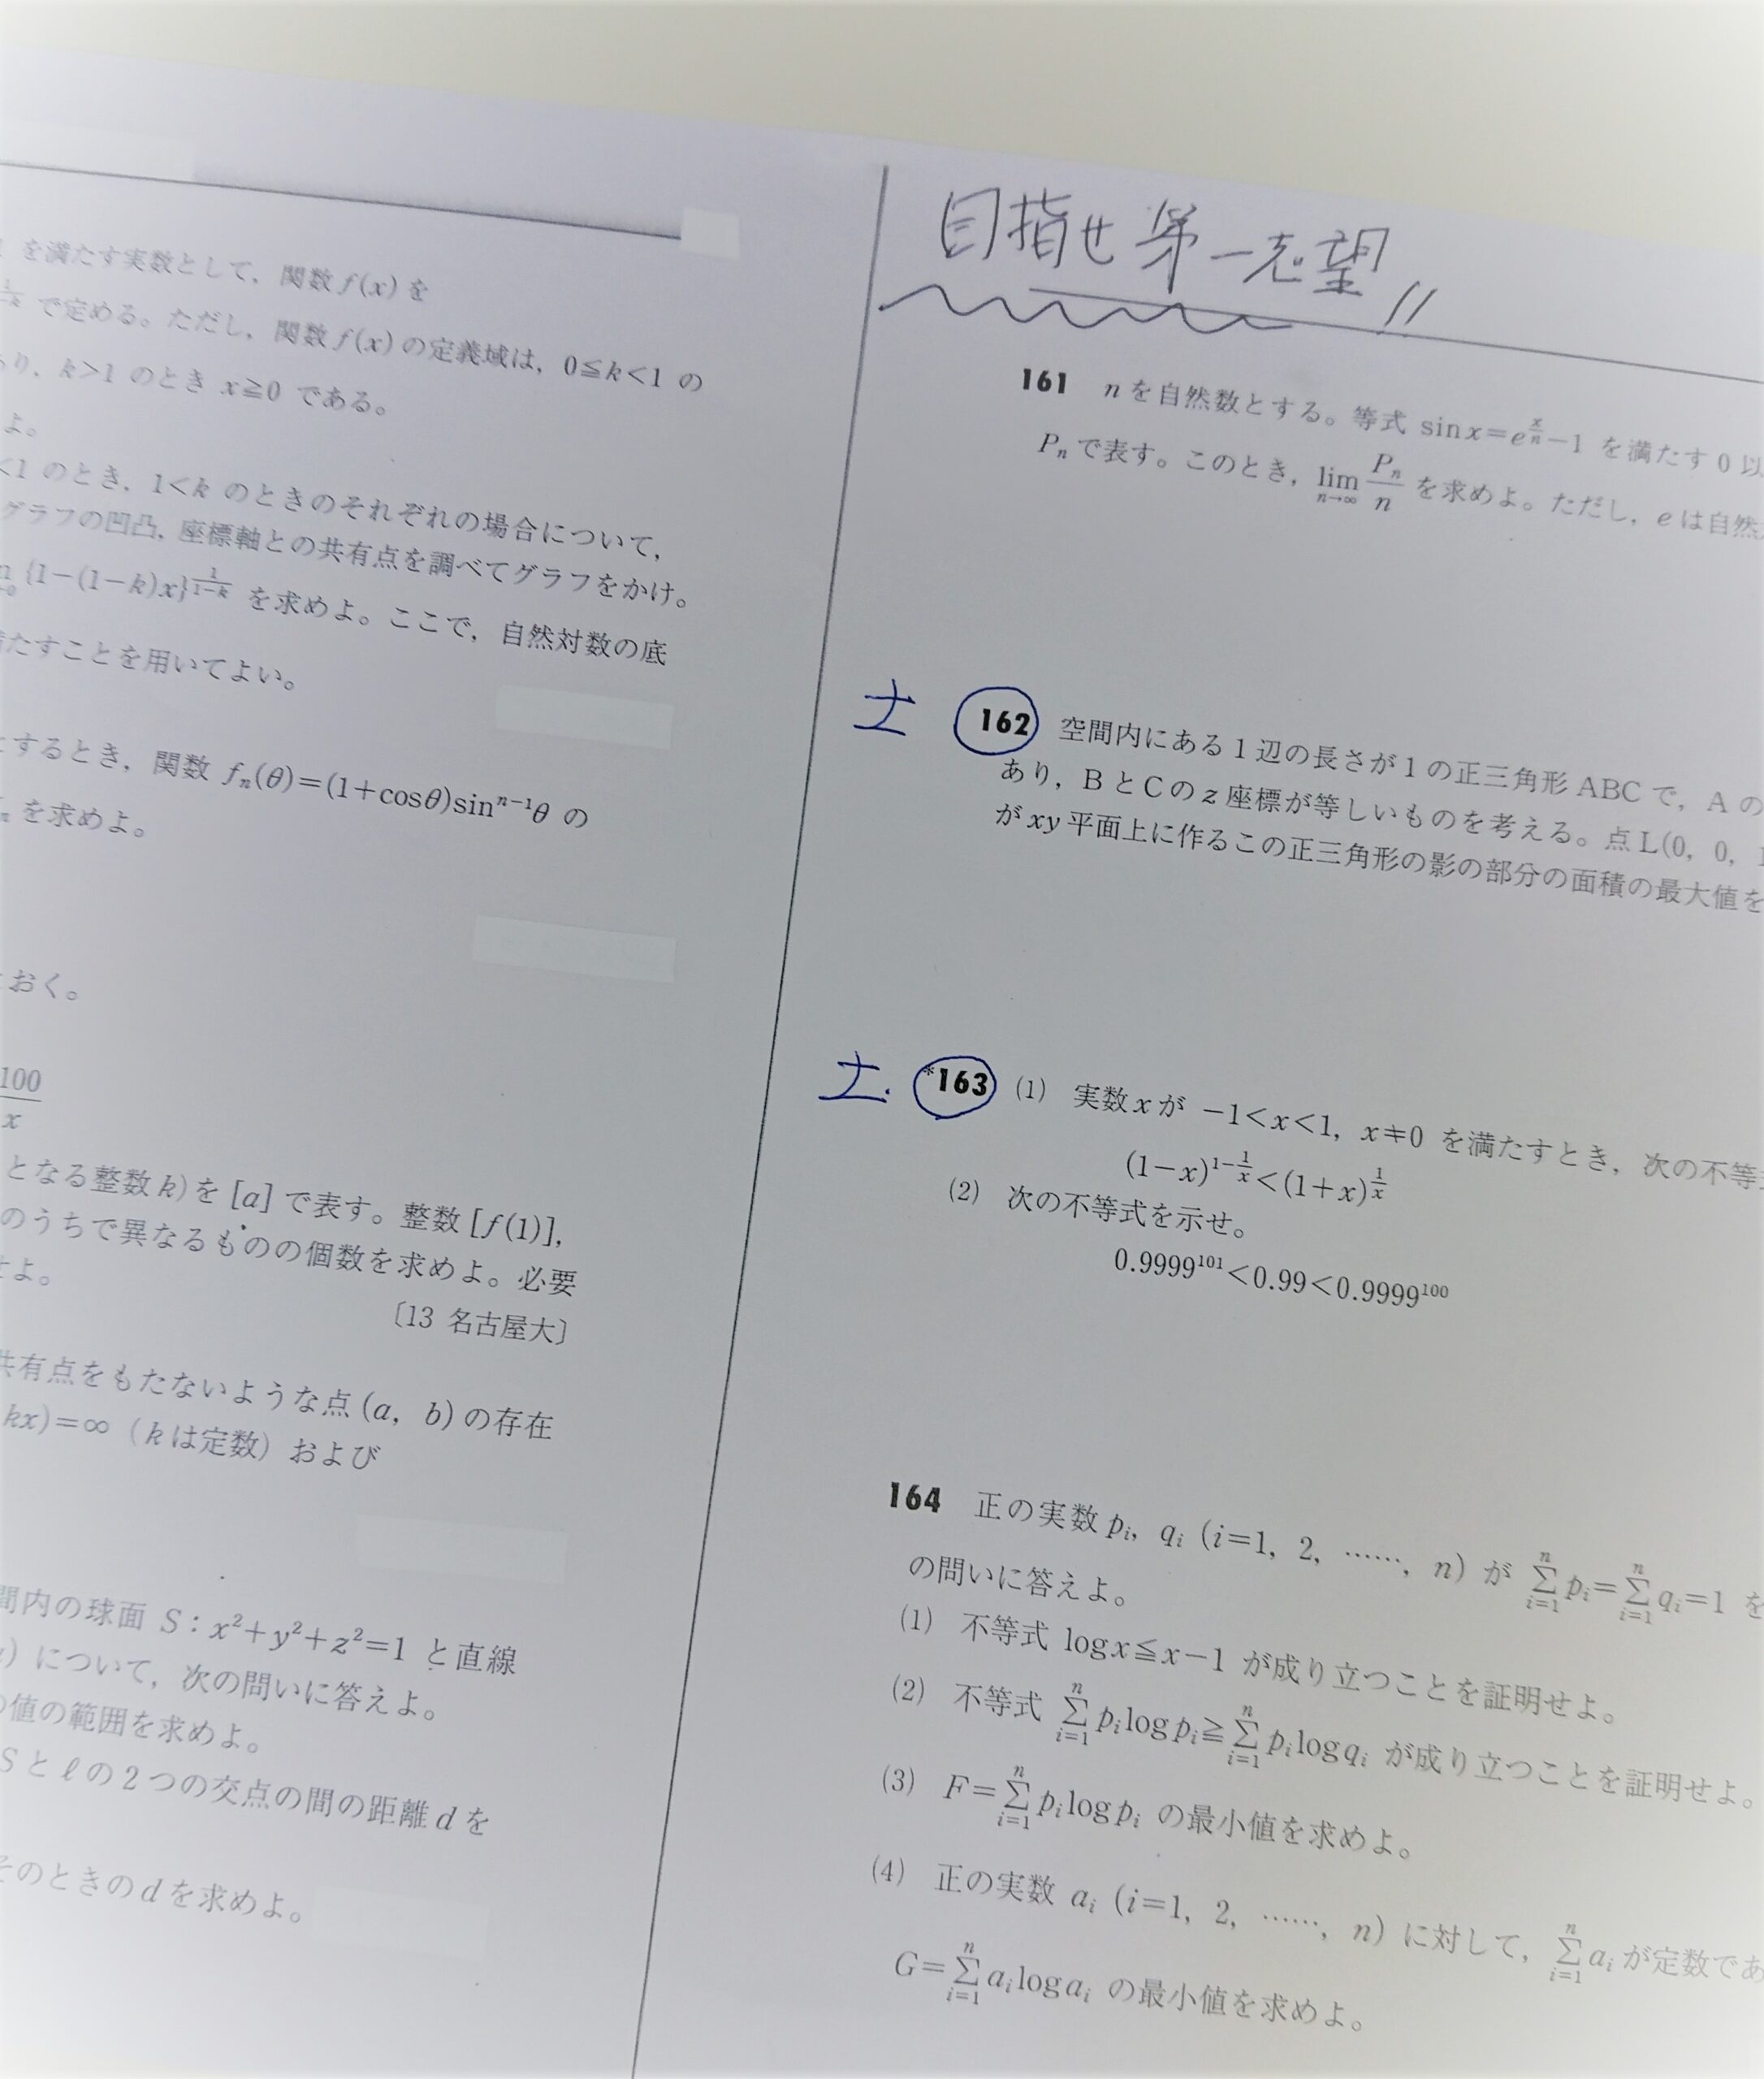 を満たす実数として,関数 f(x) を
で定める。ただし,関数 f(x) の定義域は,0≦k<1 の
k>1 のとき x≧0 である。
よ。
<1 のとき,1<k のときのそれぞれの場合について,
グラフの凹凸,座標軸との共有点を調べてグラフをかけ。
{1−(1−k)x}^{1/(1−k)} を求めよ。ここで,自然対数の底
たすことを用いてよい。
とするとき,関数 fₙ(θ)=(1+cosθ)sinⁿ⁻¹θ の
を求めよ。
おく。
100
x
となる整数 k)を [a] で表す。整数 [f(1)],
のうちで異なるものの個数を求めよ。必要
せよ。
〔13 名古屋大〕
共有点をもたないような点 (a, b) の存在
kx)=∞ (k は定数) および
間内の球面 S:x²+y²+z²=1 と直線
) について,次の問いに答えよ。
の値の範囲を求めよ。
S と ℓ の 2 つの交点の間の距離 d を
そのときの d を求めよ。
目指せ 第一志望!!
161 n を自然数とする。等式 sin x=e^{x/n}−1 を満たす 0 以
Pₙ で表す。このとき,lim_{n→∞} Pₙ/n を求めよ。ただし,e は自然
士 162 空間内にある 1 辺の長さが 1 の正三角形 ABC で,A の
あり,B と C の z 座標が等しいものを考える。点 L(0, 0, 1
が xy 平面上に作るこの正三角形の影の部分の面積の最大値を
士. *163 (1) 実数 x が −1<x<1, x≠0 を満たすとき,次の不等
(1−x)^{1−1/x}<(1+x)^{1/x}
(2) 次の不等式を示せ。
0.9999¹⁰¹<0.99<0.9999¹⁰⁰
164 正の実数 pᵢ, qᵢ (i=1, 2, ……, n) が Σ_{i=1}^{n} pᵢ=Σ_{i=1}^{n} qᵢ=1 を
の問いに答えよ。
(1) 不等式 log x≦x−1 が成り立つことを証明せよ。
(2) 不等式 Σ_{i=1}^{n} pᵢ log pᵢ≧Σ_{i=1}^{n} pᵢ log qᵢ が成り立つことを証明せよ。
(3) F=Σ_{i=1}^{n} pᵢ log pᵢ の最小値を求めよ。
(4) 正の実数 aᵢ (i=1, 2, ……, n) に対して,Σ_{i=1}^{n} aᵢ が定数であ
G=Σ_{i=1}^{n} aᵢ log aᵢ の最小値を求めよ。